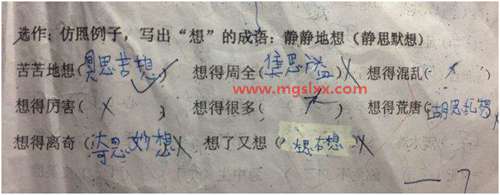 选作：仿照例子，写出“想”的成语：静静地想（静思默想）
苦苦地想（冥思苦想） 想得周全（ 思 ）× 想得混乱（ × ）
www.mgslxx.com
想得厉害（ × ） 想得很多（ × ） 想得荒唐（胡思乱想
想得离奇（奇思妙想× 想了又想（想右想 ×
—7